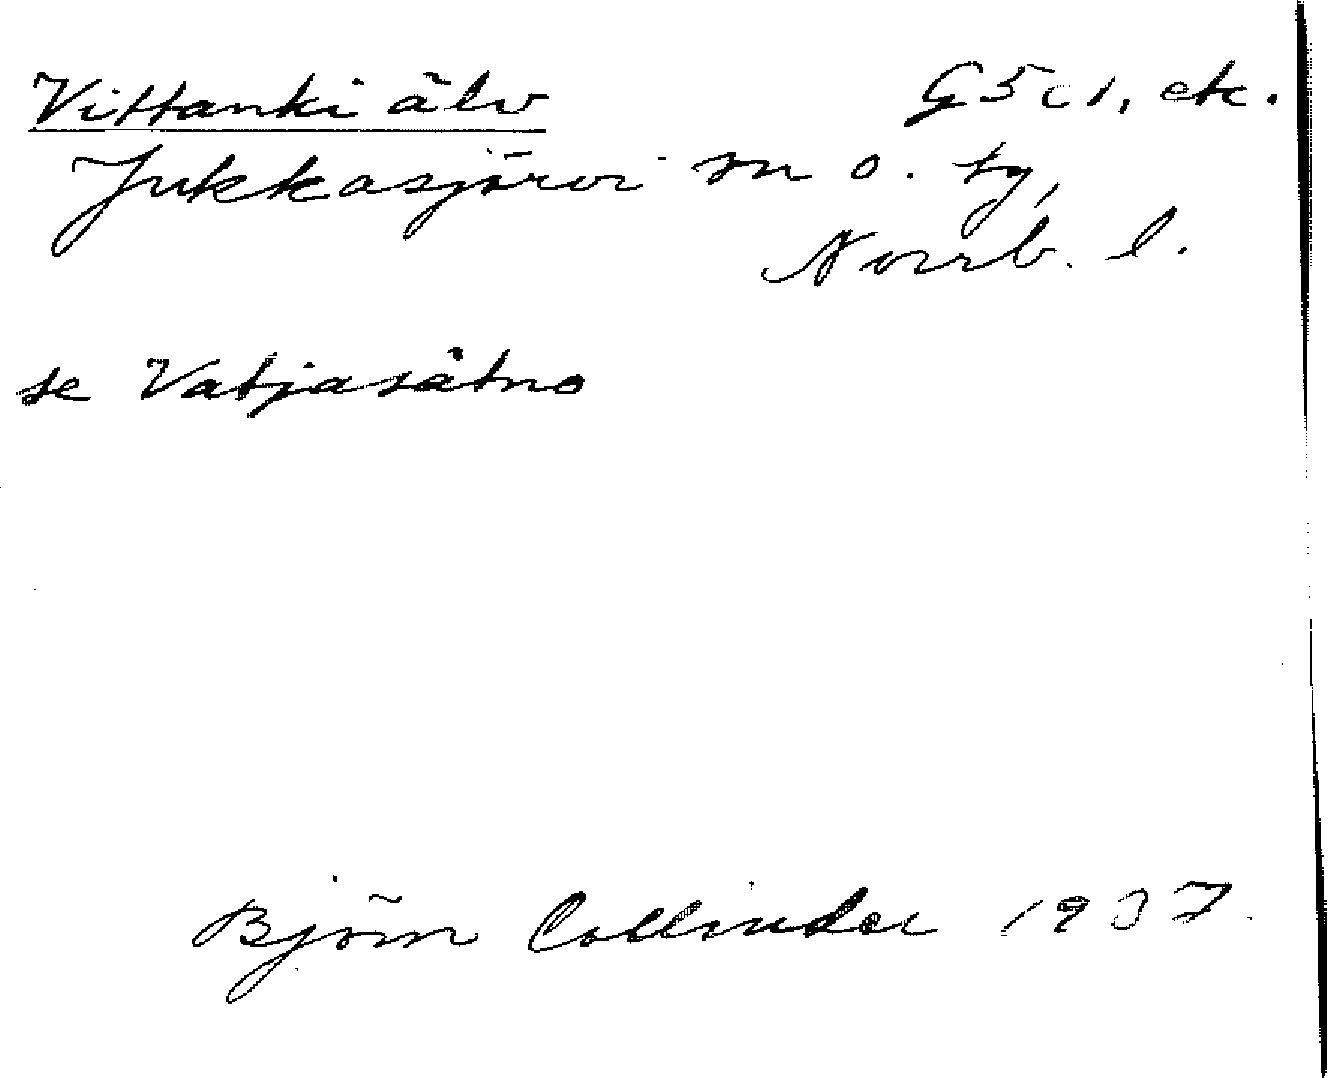 Vittanki älv G5c1, etc.
Jukkasjärvi sn o. tg,
Norrb. l.
se Vatjasätno
Björn Collinder 1937.